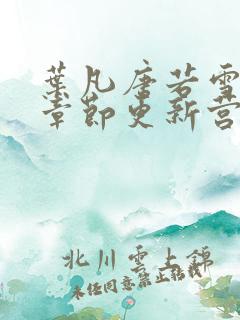 葉凡唐若雪
章節更新營
北川雲上錦
未经同意禁止转载